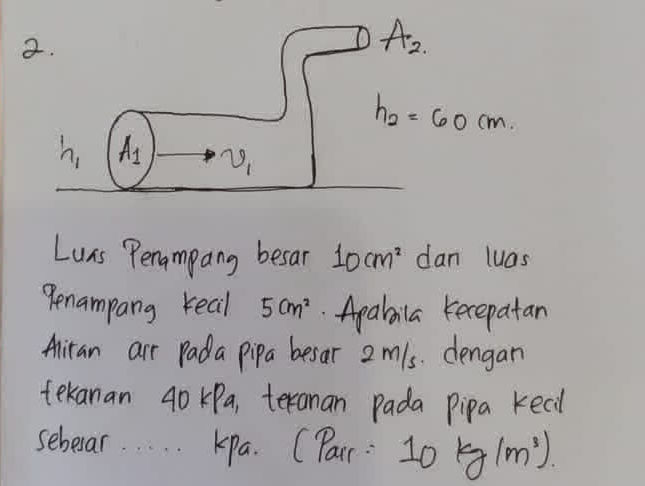 2.
A₂.
h₂ = 60 cm.
h₁ A1 v₁
Luas Penampang besar 10 cm² dan luas
Penampang kecil 5 cm². Apabila kecepatan
Aliran air pada pipa besar 2 m/s. dengan
tekanan 40 kPa, tekanan pada pipa kecil
sebesar ..... kpa. (Pair = 10 kg/m³).